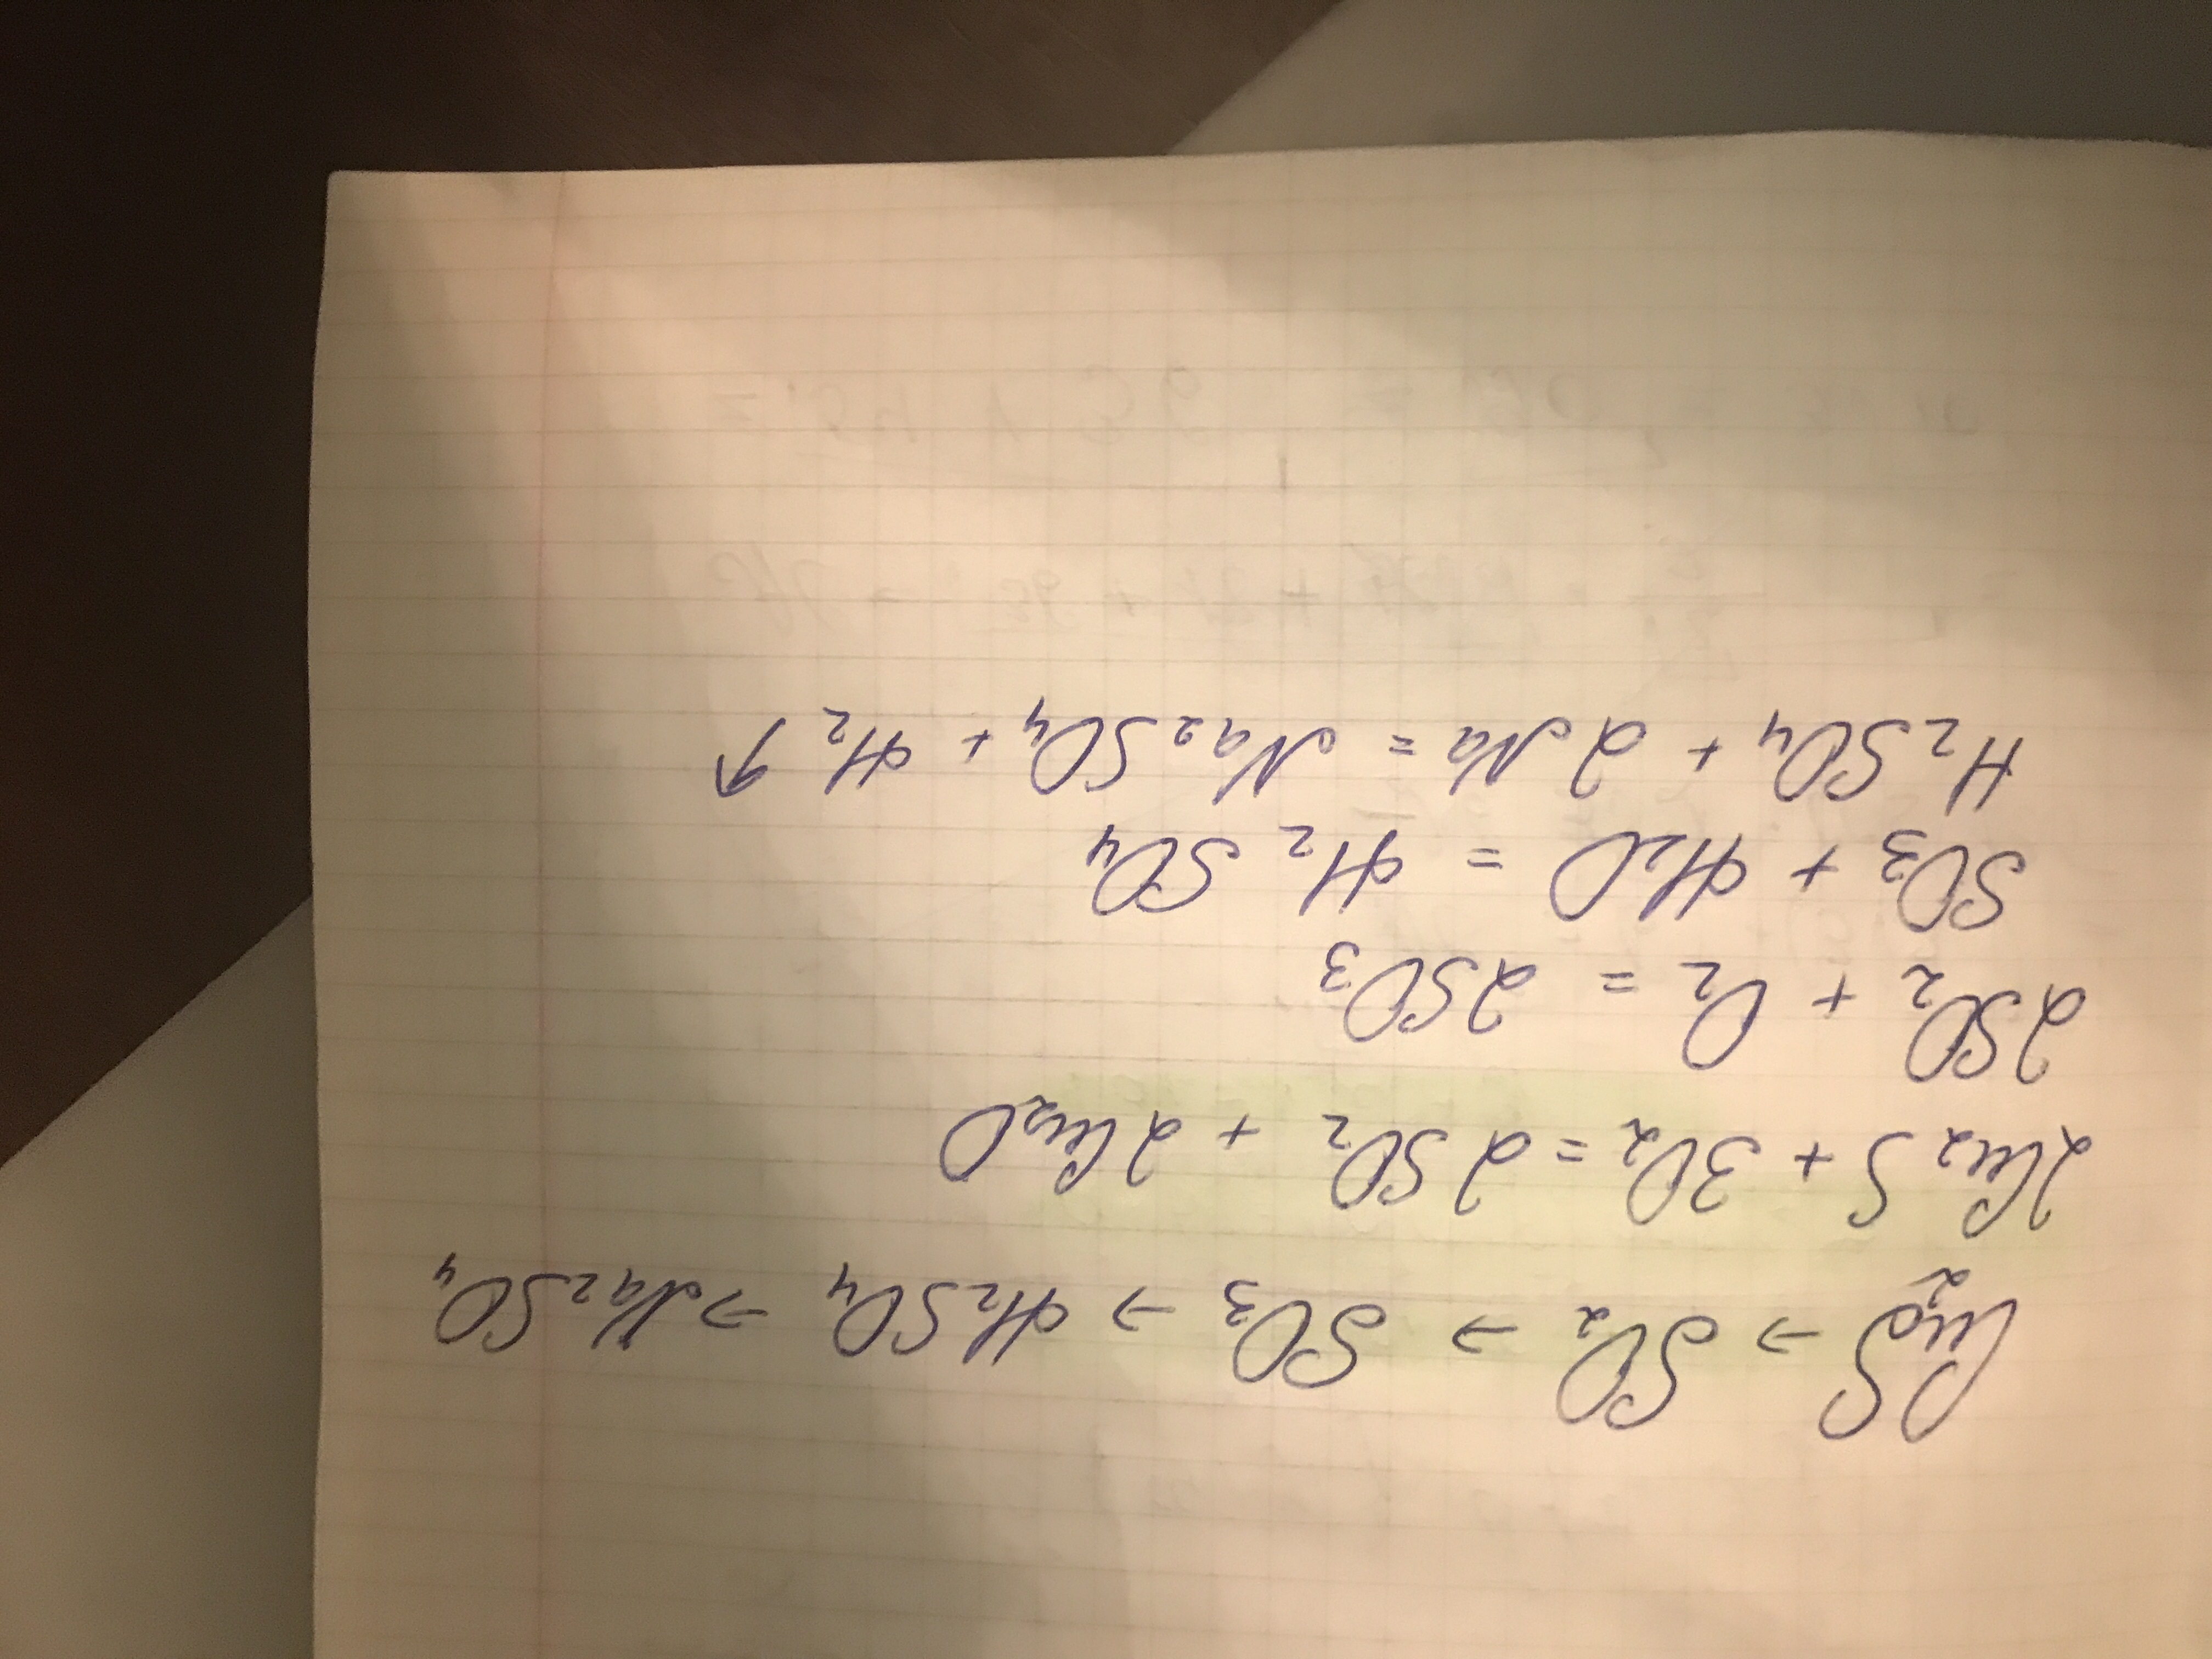 Cu₂S → SO₂ → SO₃ → H₂SO₄ → Na₂SO₄
2Cu₂S + 3O₂ = 2SO₂ + 2Cu₂O
2SO₂ + O₂ = 2SO₃
SO₃ + H₂O = H₂SO₄
H₂SO₄ + 2Na = Na₂SO₄ + H₂↑